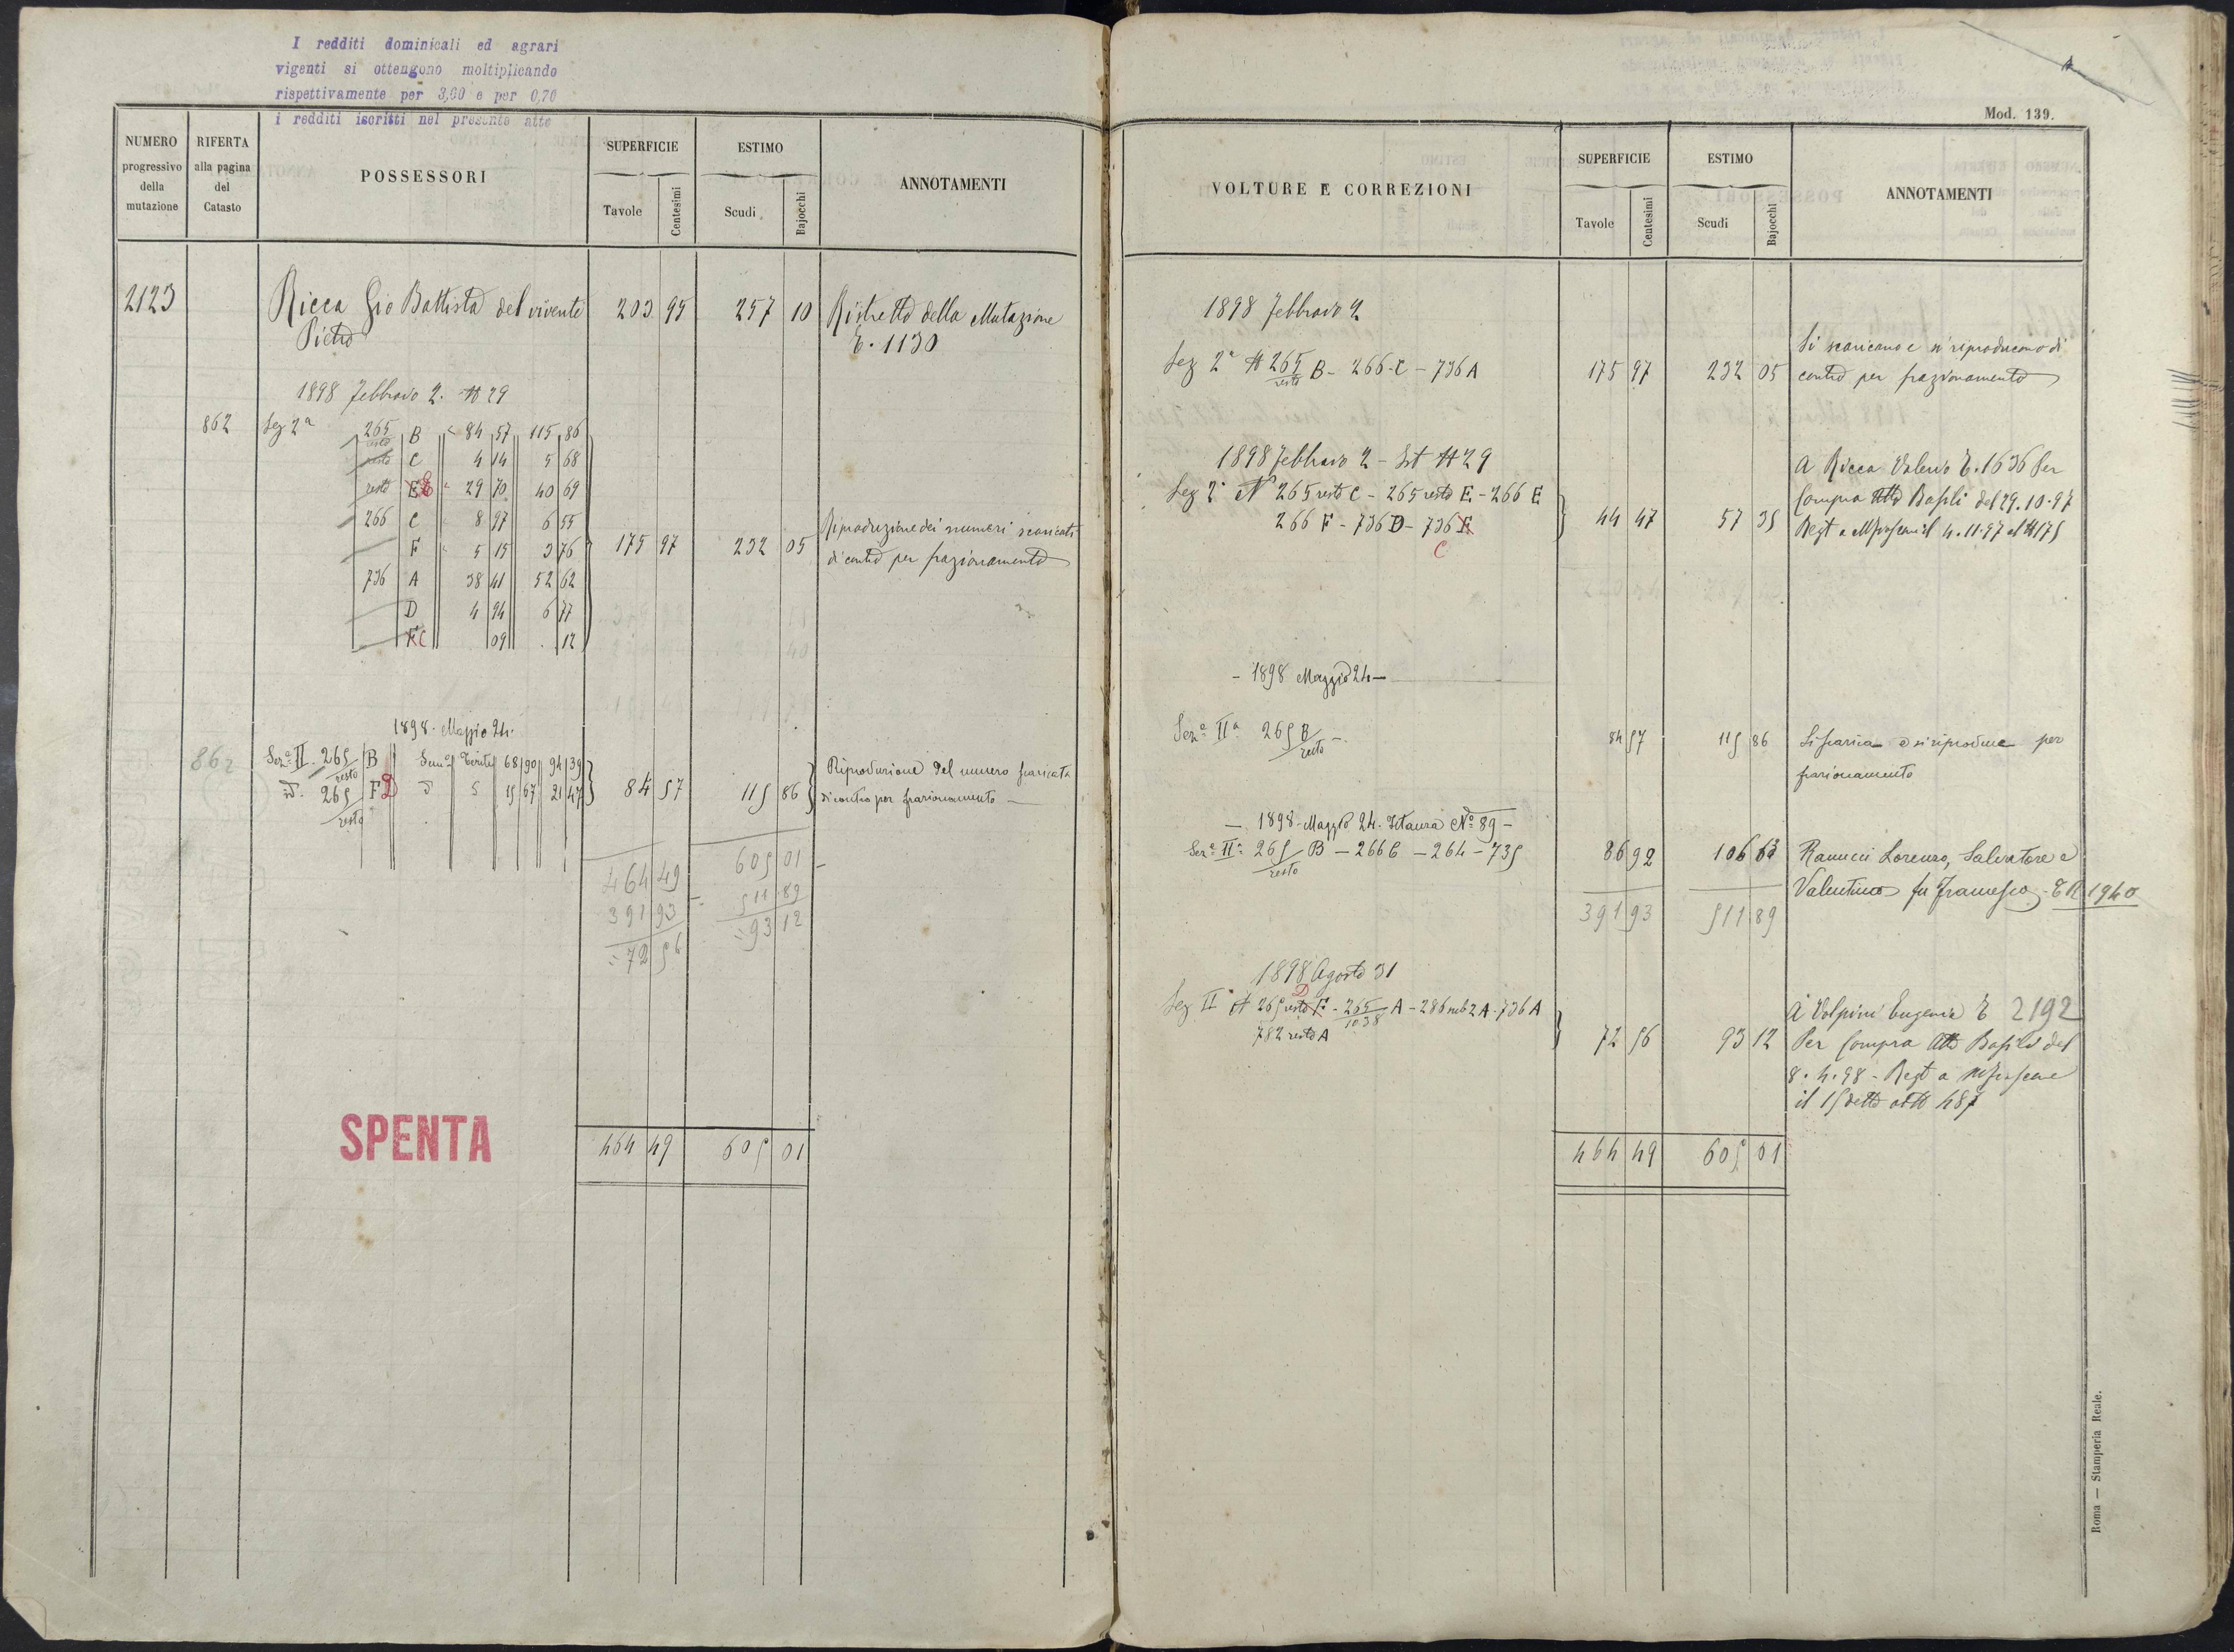 I redditi dominicali ed agrari
vigenti si ottengono moltiplicando
rispettivamente per 3,60 e per 0,70
i redditi iscritti nel presente atto
NUMERO progressivo della mutazione
RIFERTA alla pagina del Catasto
POSSESSORI
SUPERFICIE
Tavole Centesimi
ESTIMO
Scudi Bajocchi
ANNOTAMENTI
2123 Ricca Gio Battista del vivente 203 95 257 10 Ristretto della Mutazione
Pietro E. 1130
1898 Febbraio 2. N 29
862 Sez 2ª 265 resto B 84 57 115 86
resto C 4 14 5 68
resto E 29 70 40 69
266 C 8 97 6 55
F 5 15 3 76
175 97 232 05 Riproduzione dei numeri scaricati
di contro per frazionamento
736 A 38 41 52 62
D 4 94 6 77
F C 09 . 12
1898. Maggio 24.
862 Sezª II. 265 resto B 68 90 94 39
id. 265 resto F D 5 15 67 21 47
84 57 115 86 Riproduzione del numero scaricato
di contro per frazionamento —
464 49 605 01
391 93 511 89
72 56 93 12
SPENTA
464 49 605 01
Mod. 139.
VOLTURE E CORREZIONI
SUPERFICIE
Tavole Centesimi
ESTIMO
Scudi Bajocchi
ANNOTAMENTI
1898 Febbraio 2
Sez 2ª N 265 resto B - 266 C - 736 A 175 97 232 05
Si scaricano e si riproducono di
contro per frazionamento
1898 Febbraio 2 - Ist N 29
Sez 2ª N 265 resto C - 265 resto E - 266 E
266 F - 736 D - 736 F C 44 47 57 35
A Ricca Valerio E. 1636 Per
Compra Atto Basili del 29.10.97
Regt a il 4.11.97 al N 175
- 1898 Maggio 24 —
Sezª IIª 265 B resto — 84 57 115 86 Si scarica e si riproduce per
frazionamento
— 1898 - Maggio 24. Istanza Nº 89 —
Sezª IIª 265 resto B — 266 C — 264 — 735 86 92 106 63 Ranucci Lorenzo, Salvatore e
Valentino fu Francesco - E N 1940
391 93 511 89
1898 Agosto 31
Sez II N 265 resto F D - 265/1038 A - 286 sub 2 A - 736 A
782 resto A 72 56 93 12
A Volpini Eugenio E 2192
Per Compra Atto Basili del
8.4.98 - Regt a
il 15 detto al N 487
464 49 605 01
Roma — Stamperia Reale.